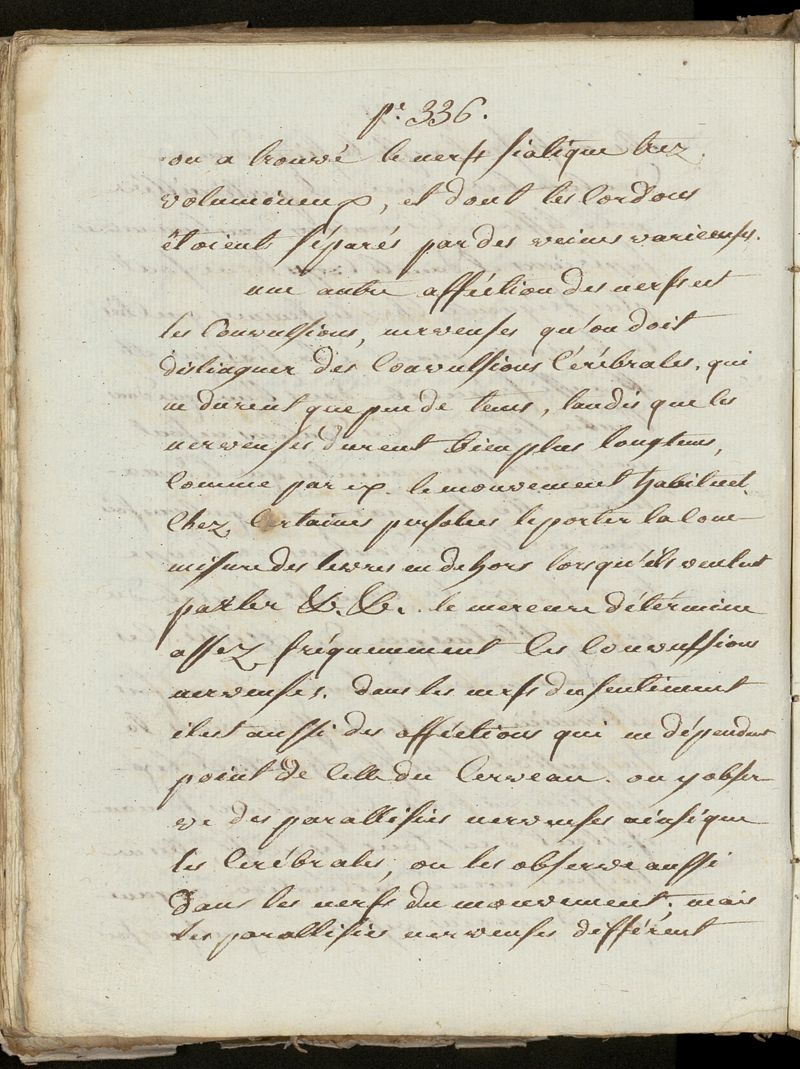 pe. 336.
on a trouvé le nerf siatique trez
volumineux, et dont les Cordons
étoient séparés par des veines variceuses.
une autre affection des nerfs est
les Convulsions, nerveuses qu'on doit
distinguer des Convulsions Cérébrales, qui
ne durent que peu de tems, tandis que les
nerveuses durent bien plus longtems,
Comme par ex. le mouvement habituel
Chez Certaines persones de porter la Com-
missure des levres en dehors lorsqu'ils veulent
parler &. &. le mercure détermine
assez fréquemment les Convulsions
nerveuses. dans les nerfs du sentiment
il est aussi des affections qui ne dépendent
point de Celle du Cerveau. on y obser-
ve des parallisies nerveuses ainsi que
les Cerébrales, on les observe aussi
dans les nerfs du mouvement. mais
les parallisies nerveuses différent